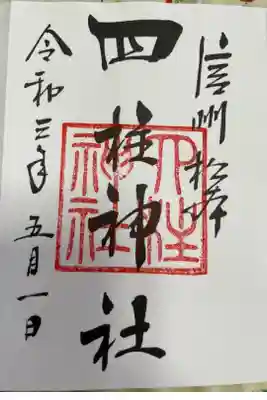 信州松本
四柱神社
四柱神社
令和三年五月一日